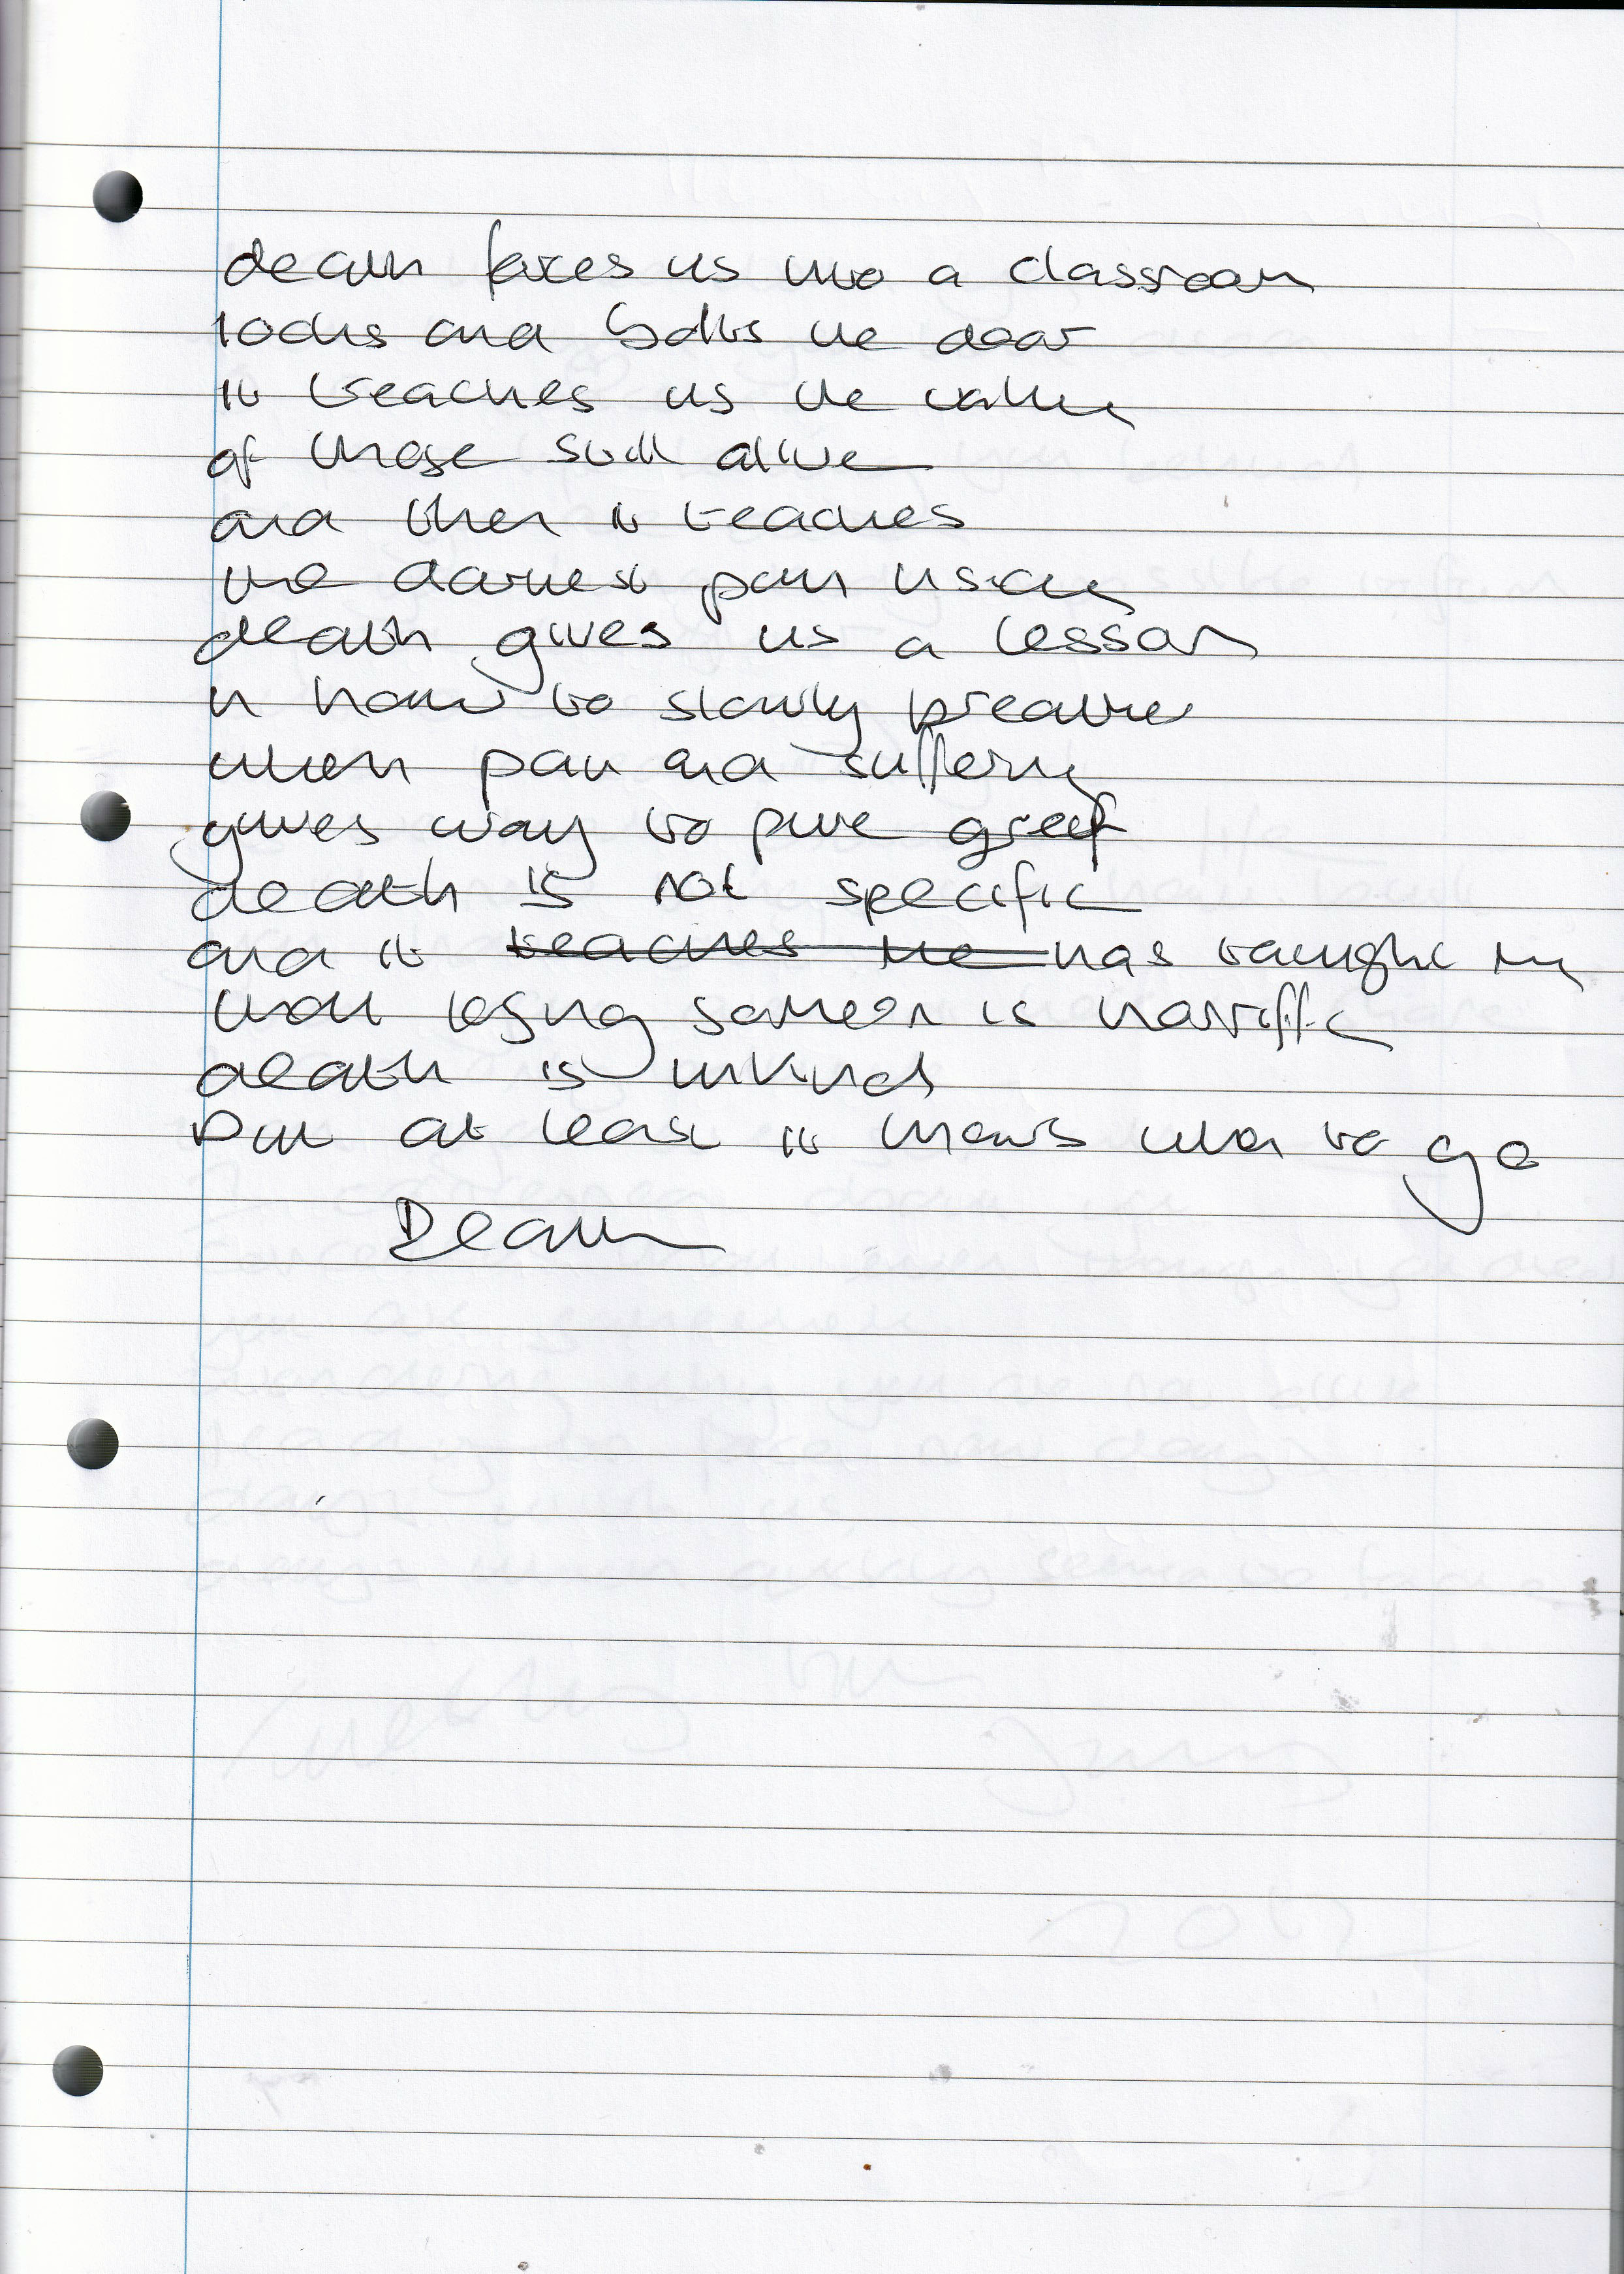 death forces us into a classroom
locks and bolts the door
it teaches us the value
of those still alive
and then it teaches
the darkest pain
death gives us a lesson
in how to slowly breathe
when pain and suffering
gives way to pure greef
death is not specific
and it teaches me has taught me
that losing someon is horriffic
death is unkind
but at least it knows when to go
Death